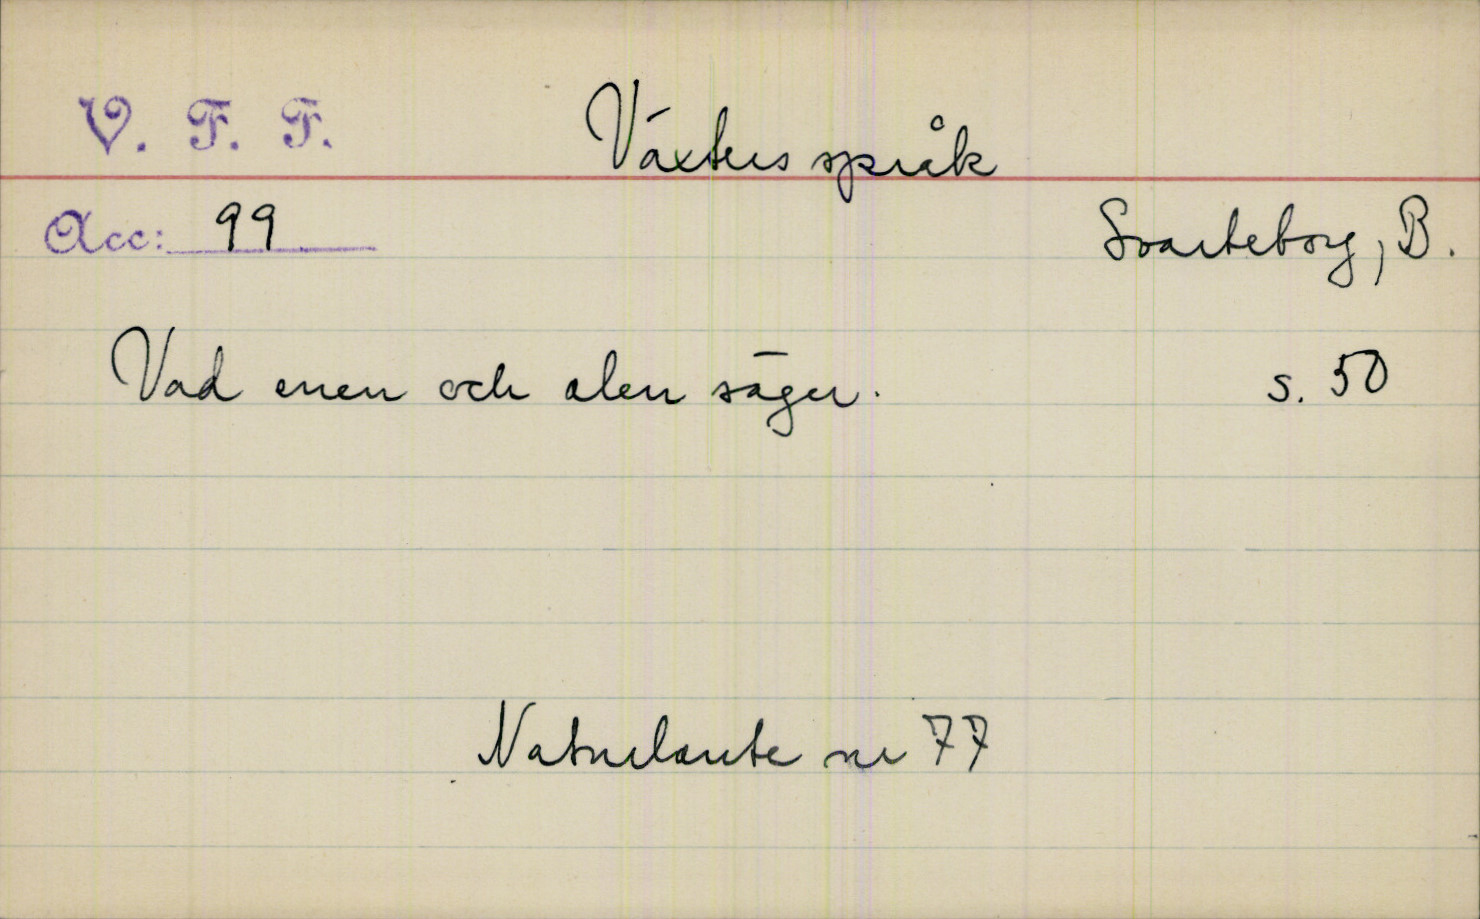 V. F. F. Växters språk
Acc: 99 Svarteborg, B.
Vad enen och alen säger. s. 50
Naturlaute nr 77